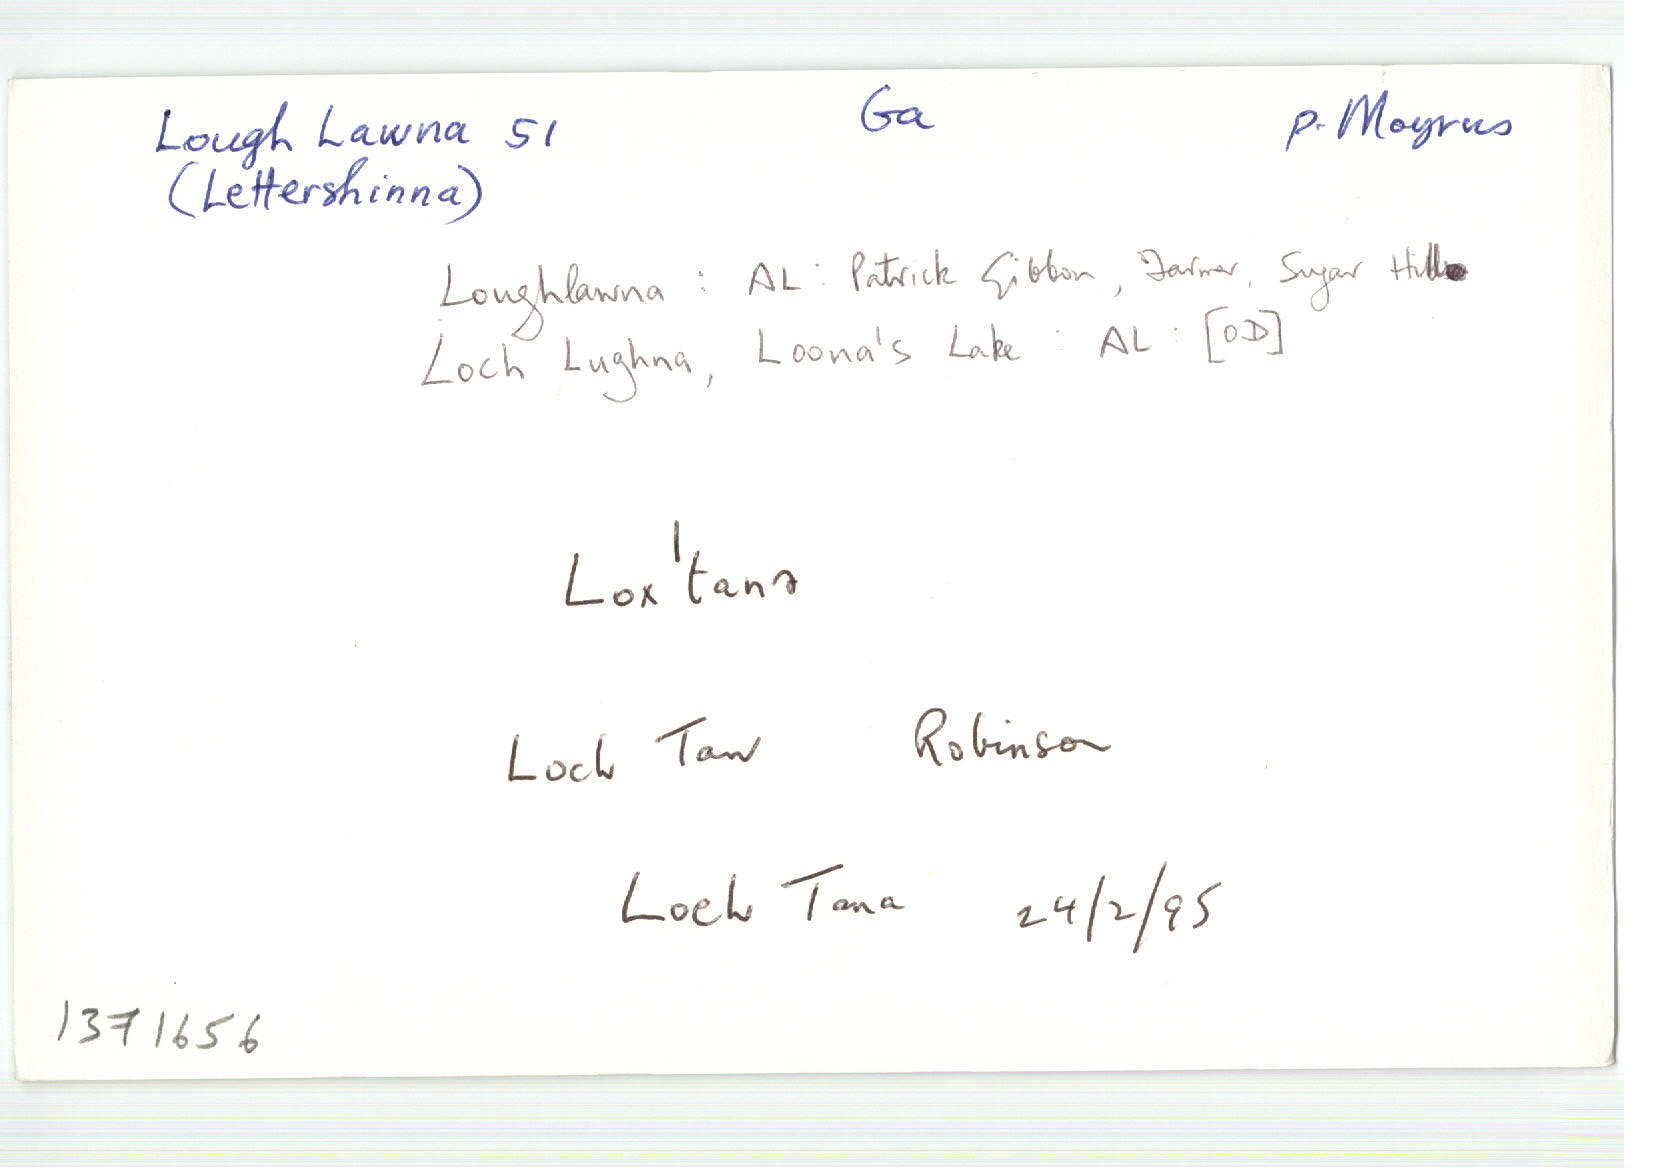 Lough Lawna 51 Ga p. Moyrus
(Lettershinna)
Loughlawna : AL : Patrick Gibbon, Farmer, Sugar Hill
Loch Lughna, Loona's Lake : AL : [OD]
Lox ˈtanə
Loch Tana Robinson
Loch Tana 24/2/95
1371656